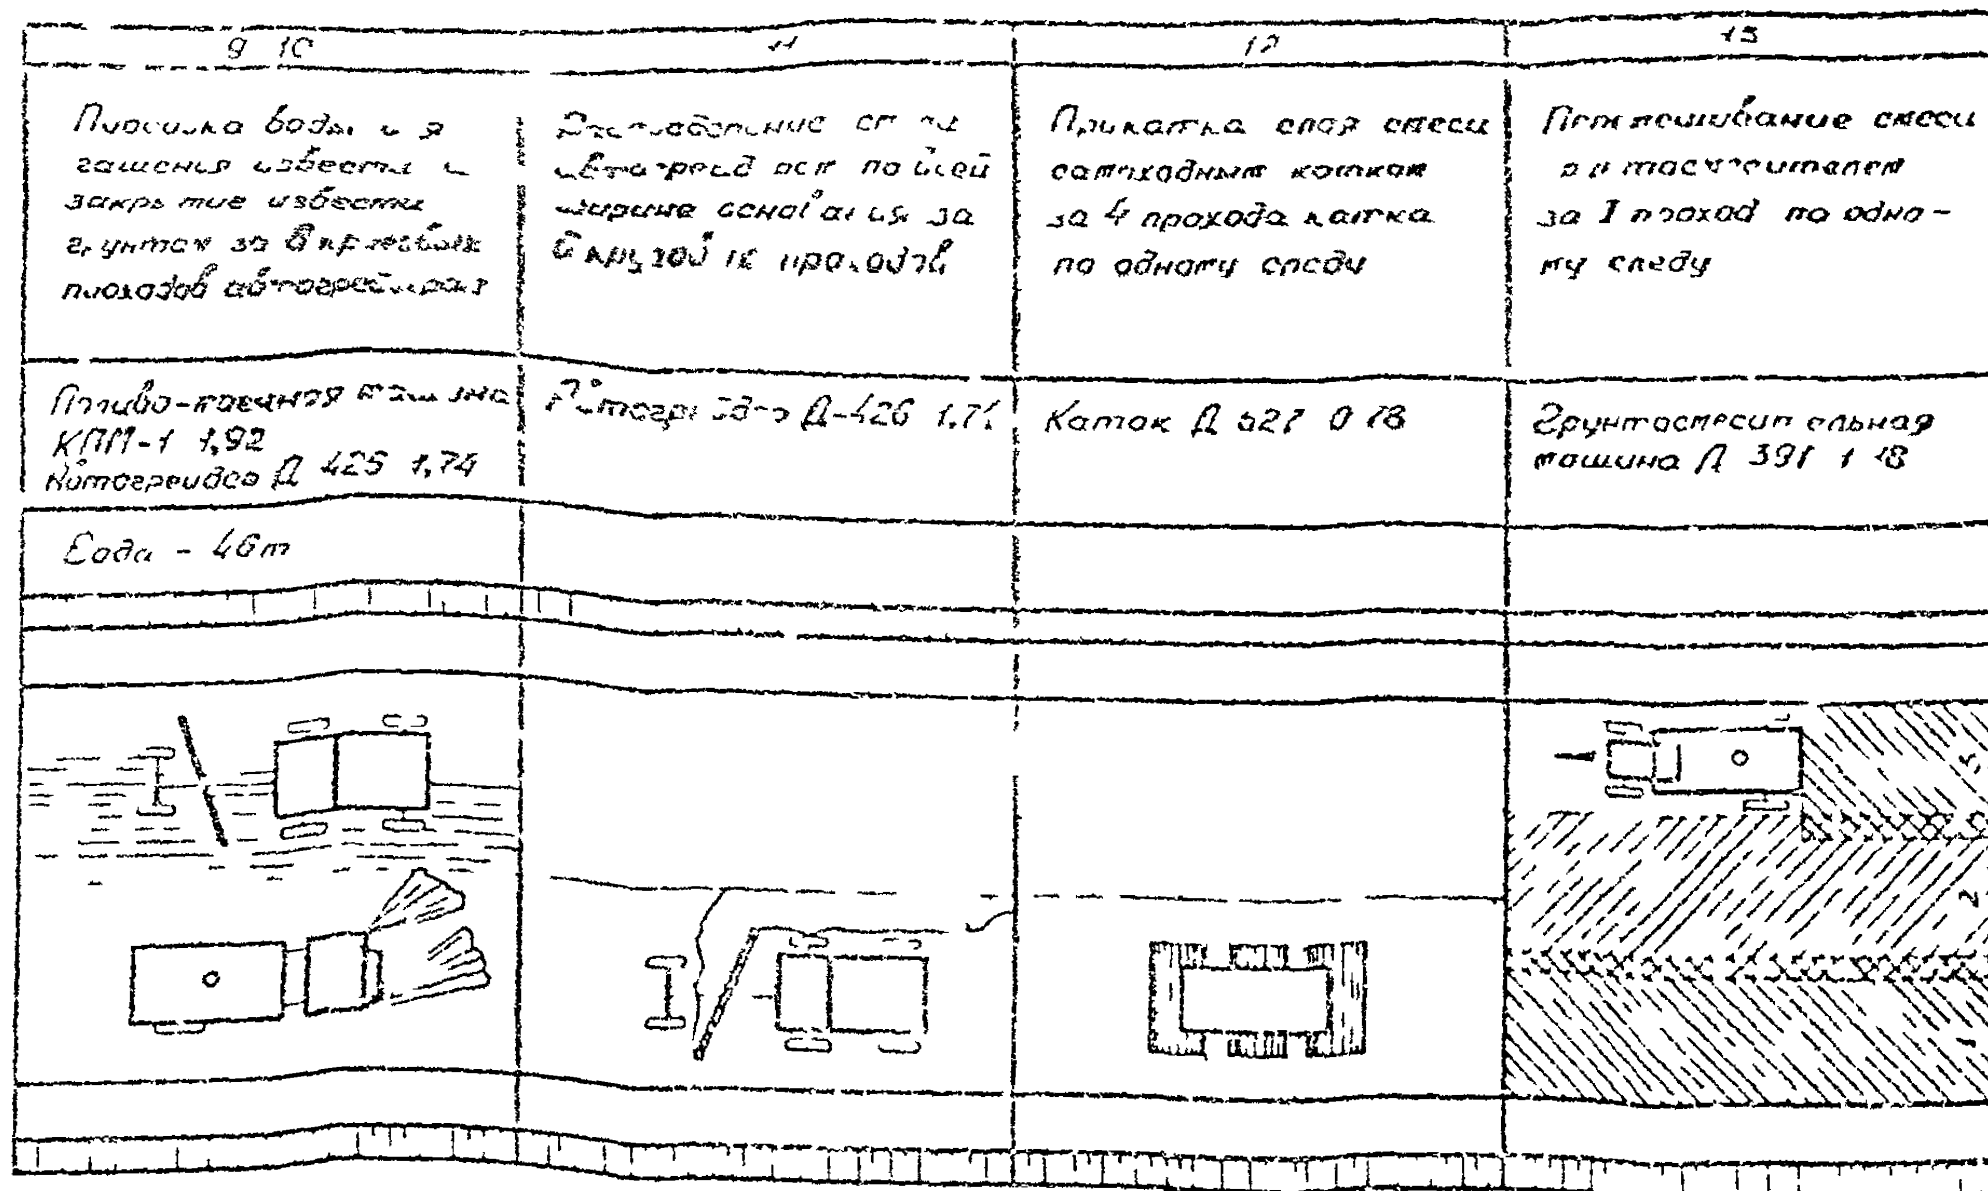 9 10
11
12
13
воды
гашения извести и
закрытие извести
грунтом за 8 круговых
проходов автогрейдера
по всей
ширине основания за
проходов
Прикатка слоя смеси
самоходным катком
за 4 прохода катка
по одному следу
Перемешивание смеси
за 1 проход по одно-
му следу
Поливо-моечная машина
КПМ-1 1,92
Автогрейдер Д 426 1,74
Автогрейдер Д-426 1.74
Каток Д 627 0 78
Грунтосмесительная
машина Д 391 1 18
Вода - 46т
3
2
1